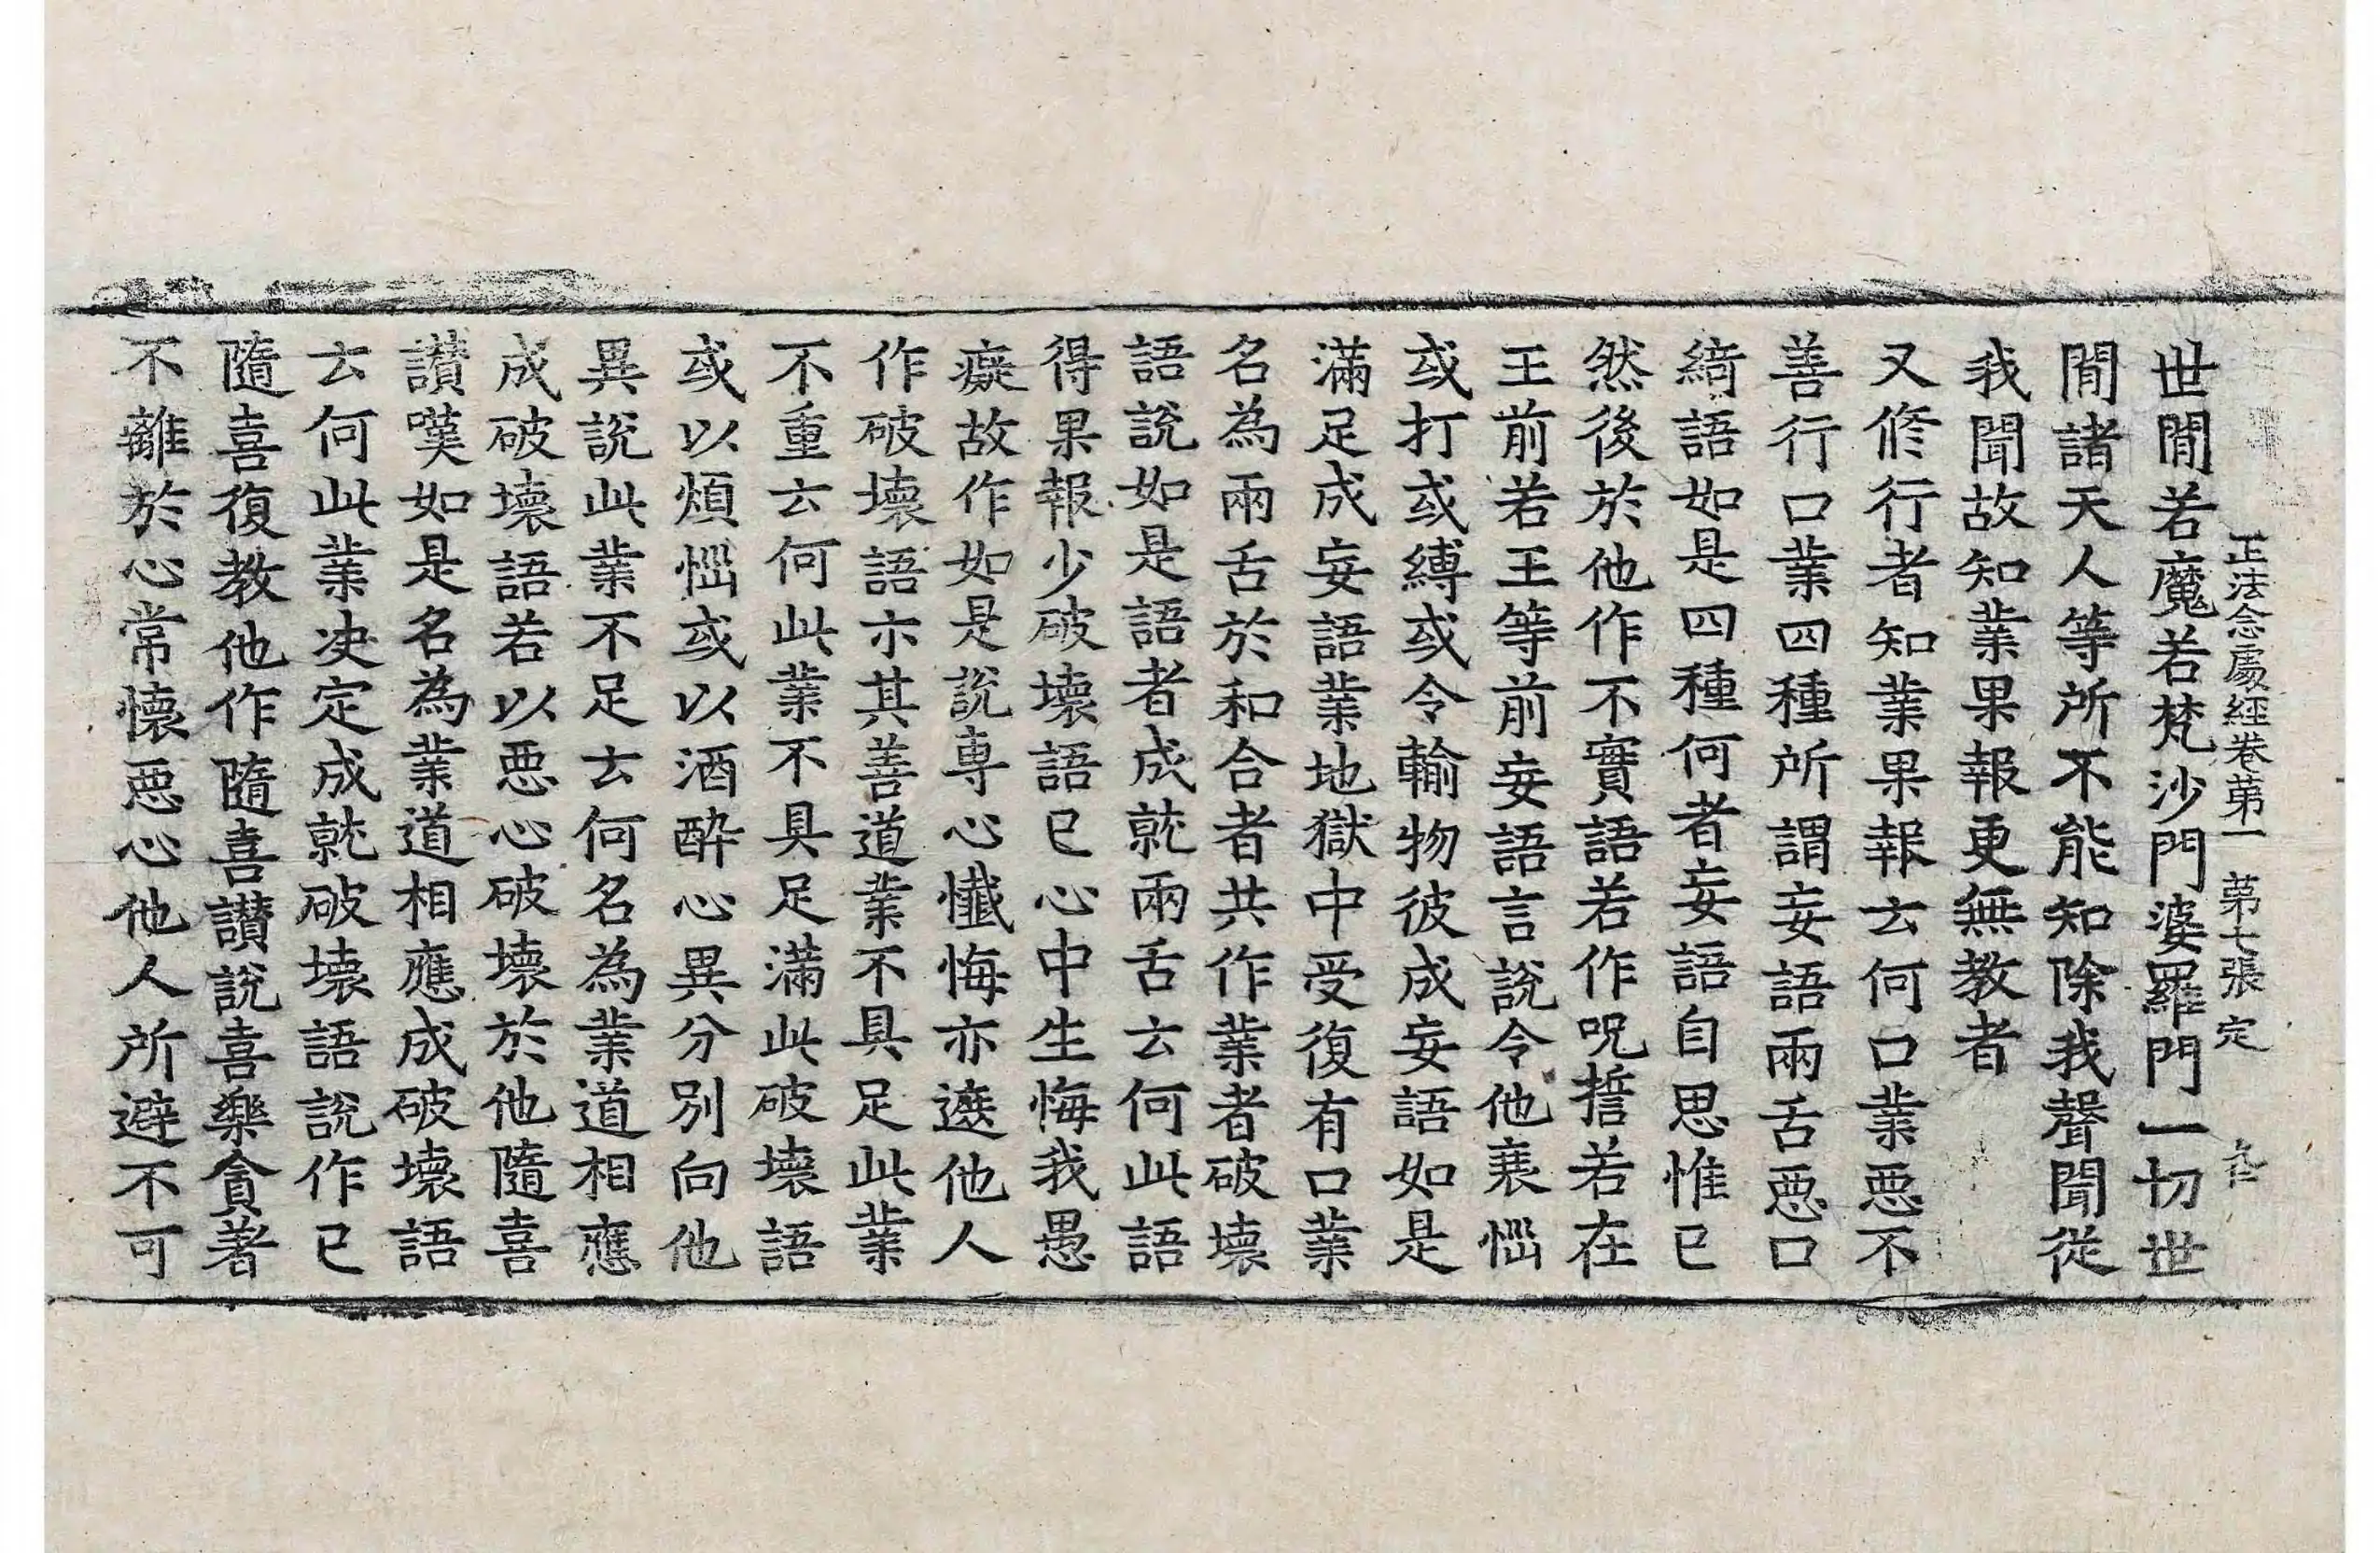 正法念處經卷第一　第七張　定
世閒若魔若梵沙門婆羅門一切世
閒諸天人等所不能知除我聲聞從
我聞故知業果報更無教者
又修行者知業果報云何口業惡不
善行口業四種所謂妄語兩舌惡口
綺語如是四種何者妄語自思惟已
然後於他作不實語若作呪誓若在
王前若王等前妄語言說令他衰惱
或打或縛或令輸物彼成妄語如是
滿足成妄語業地獄中受復有口業
名為兩舌於和合者共作業者破壞
語說如是語者成就兩舌云何此語
得果報少破壞語已心中生悔我愚
癡故作如是說專心懺悔亦遮他人
作破壞語亦其善道業不具足此業
不重云何此業不具足滿此破壞語
或以煩惱或以酒醉心異分別向他
異說此業不足云何名為業道相應
成破壞語若以惡心破壞於他隨喜
讚嘆如是名為業道相應成破壞語
云何此業決定成就破壞語說作已
隨喜復教他作隨喜讚說喜樂貪著
不離於心常懷惡心他人所避不可